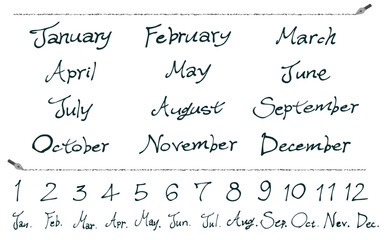 January February March
April May June
July August September
October November December
1 2 3 4 5 6 7 8 9 10 11 12
Jan. Feb. Mar. Apr. May. Jun. Jul. Aug. Sep. Oct. Nov. Dec.